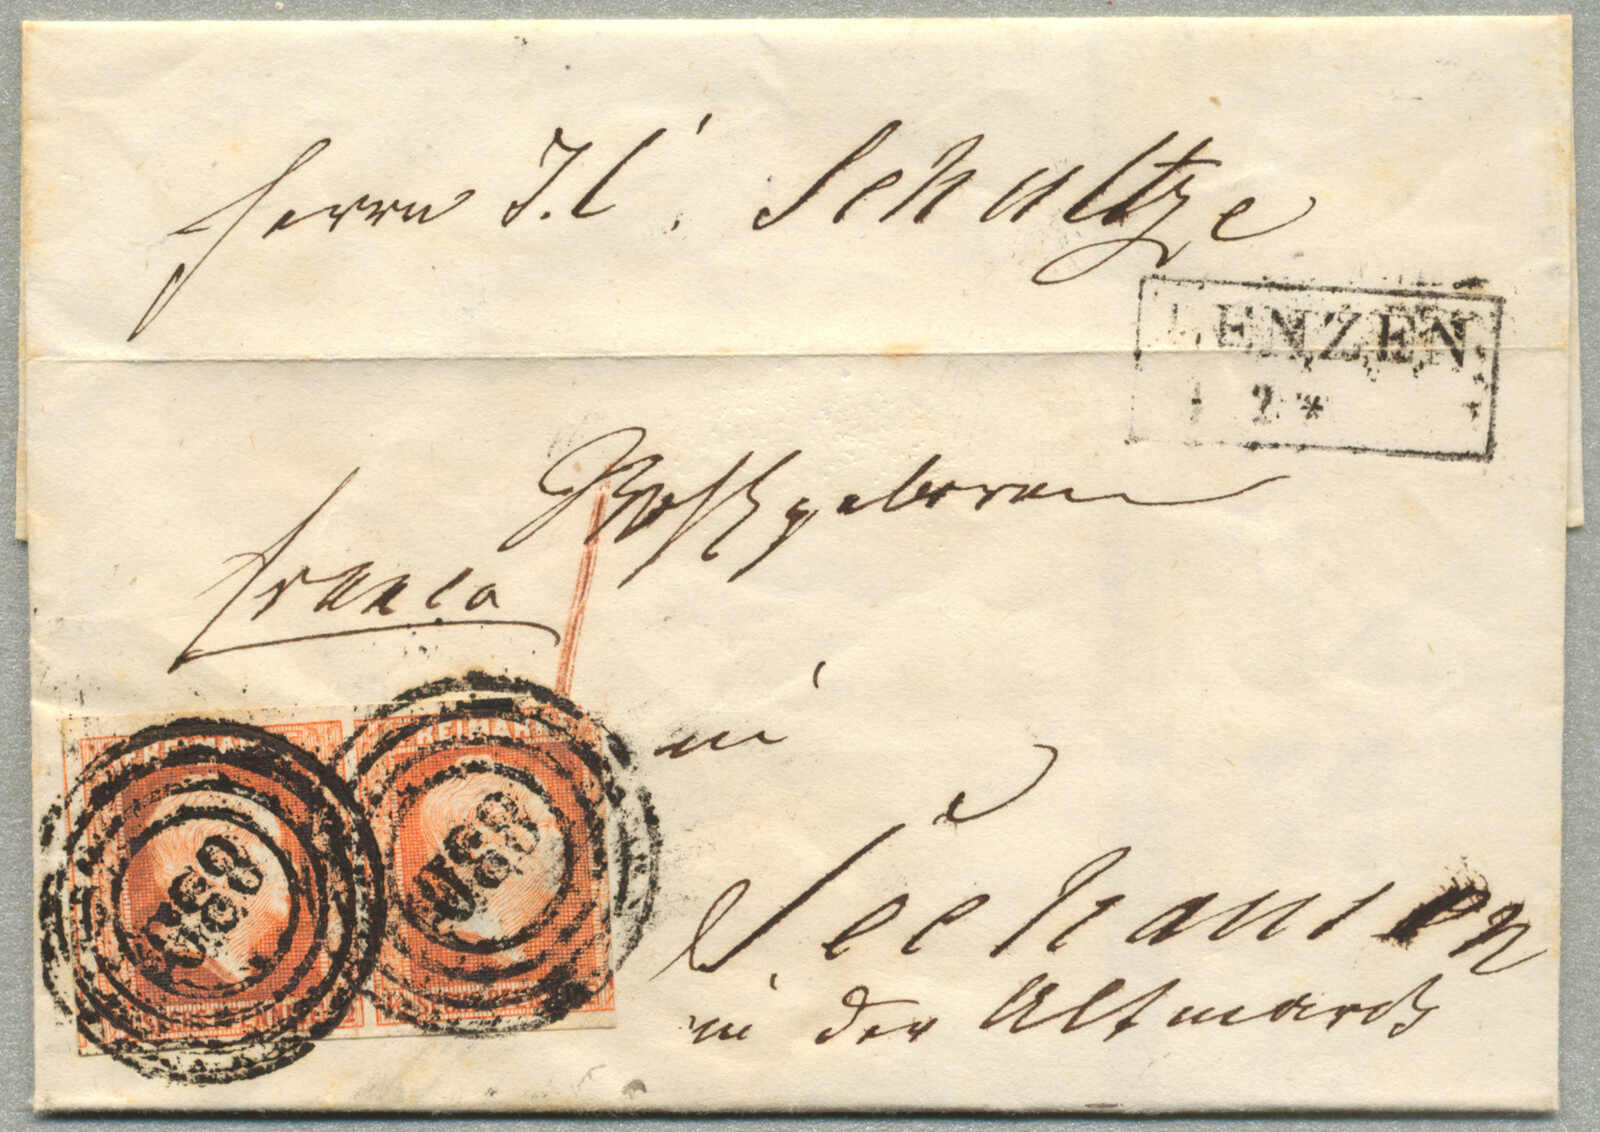 Herrn J. C. Schultze
LENZEN
1 2 *
Wohlgeboren
franco
in
FREIMARKE
Seehausen
in der Altmark